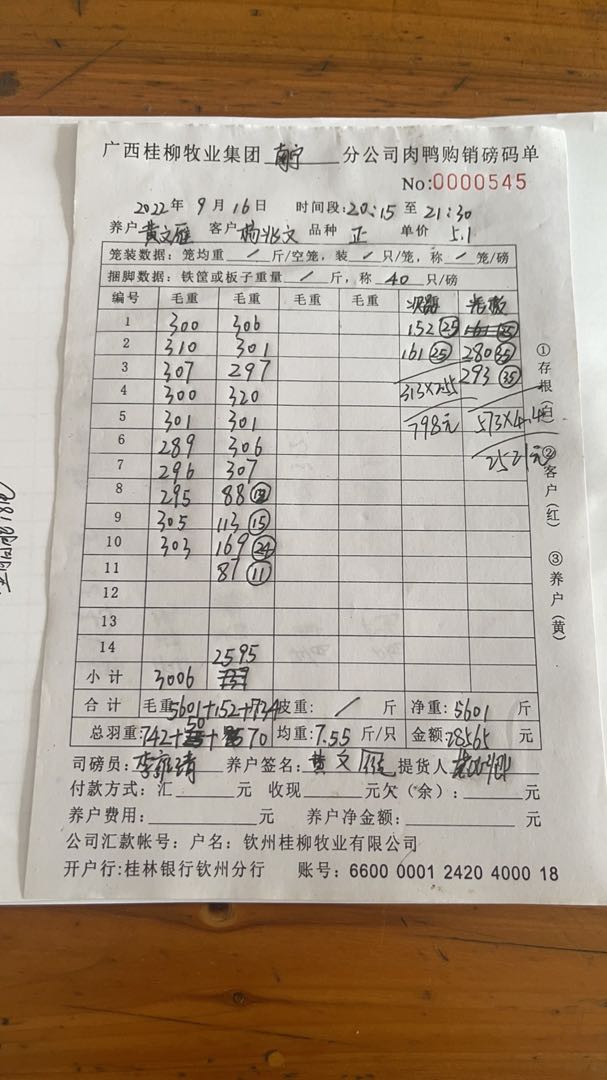 广西桂柳牧业集团 南宁 分公司肉鸭购销磅码单
No:0000545
2022年 9月16日 时间段:20:15 至 21:30
养户 黄文雁 客户 杨兆文 品种 正 单价 5.1
笼装数据：笼均重 / 斤/空笼，装 / 只/笼，称 / 笼/磅
捆脚数据：铁筐或板子重量 / 斤，称 40 只/磅
编号 毛重 毛重 毛重 毛重
1 300 306 152 25
2 310 301 161 25 280 35
3 307 297 293 35
4 300 320 313×2.55
5 301 301 798元 573×4.4
6 289 306 2521元
7 296 307
8 295 88
9 305 113 15
10 303 169 24
11 87 11
12
13
14
小计 3006 2595
合计 毛重 5601+152+734 皮重: / 斤 净重:5601 斤
总羽重:742+50+70 均重:7.55 斤/只 金额:28565 元
司磅员: 养户签名: 黄文 提货人
付款方式：汇 元 收现 元欠（余）: 元
养户费用: 元 养户净金额: 元
公司汇款帐号：户名：钦州桂柳牧业有限公司
开户行:桂林银行钦州分行 账号：6600 0001 2420 4000 18
①存根(白) ②客户(红) ③养户(黄)